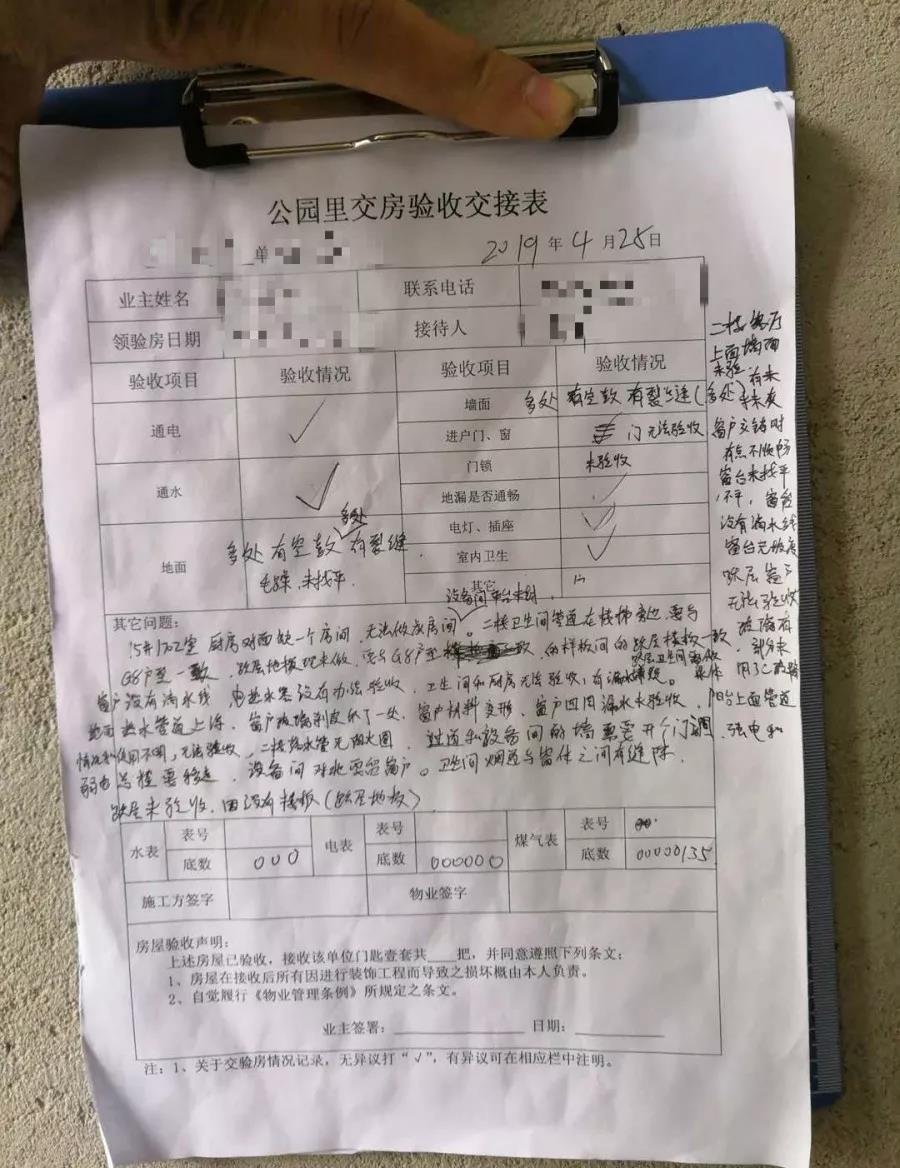 公园里交房验收交接表
单
2019年4月25日
业主姓名 联系电话
领验房日期 接待人
验收项目 验收情况 验收项目 验收情况
通电 ✓ 墙面 多处 有空鼓 有裂缝(多处)
进户门、窗 门无法验收
门锁 未验收
通水 ✓ 地漏是否通畅 ✓
电灯、插座 ✓
地面 多处有空鼓 多处有裂缝
毛糙.未找平. 室内卫生 ✓
其它
二楼
上面墙面
未验
窗户交错时
有点不顺畅
窗台未找平
不平,窗台
没有滴水线
窗台无坡度
跃层窗户
无法验收
玻璃有
部分未
其它问题: 设备间平台未封.
1702室 厨房对面缺一个房间,无法做成房间。二楼卫生间管道在楼梯旁边,要与
G8户型一致,跃层地板现未做,要与G8户型 的样板间的跃层楼板一致
窗户没有滴水线 电热水器没有办法验收,卫生间和厨房无法验收,有漏水
热水管道上，窗户玻璃 一处,窗户材料变形、窗户四周漏水未验收,阳台上面管道
情况和使用不明,无法验收,二楼给水管无图,过道和设备间的墙要开个门洞,强电和
弱电总 要移走,设备间对 要 窗户。卫生间烟道与窗体之间有缝隙.
跃层未验收.因没有楼板(跃层地板)
水表 表号 电表 表号 煤气表 表号
底数 000 底数 000000 底数 00000135
施工方签字 物业签字
房屋验收声明:
上述房屋已验收，接收该单位门匙壹套共___把，并同意遵照下列条文:
1、房屋在接收后所有因进行装饰工程而导致之损坏概由本人负责。
2、自觉履行《物业管理条例》所规定之条文。
业主签署: 日期:
注: 1、关于交验房情况记录，无异议打“√”，有异议可在相应栏中注明。